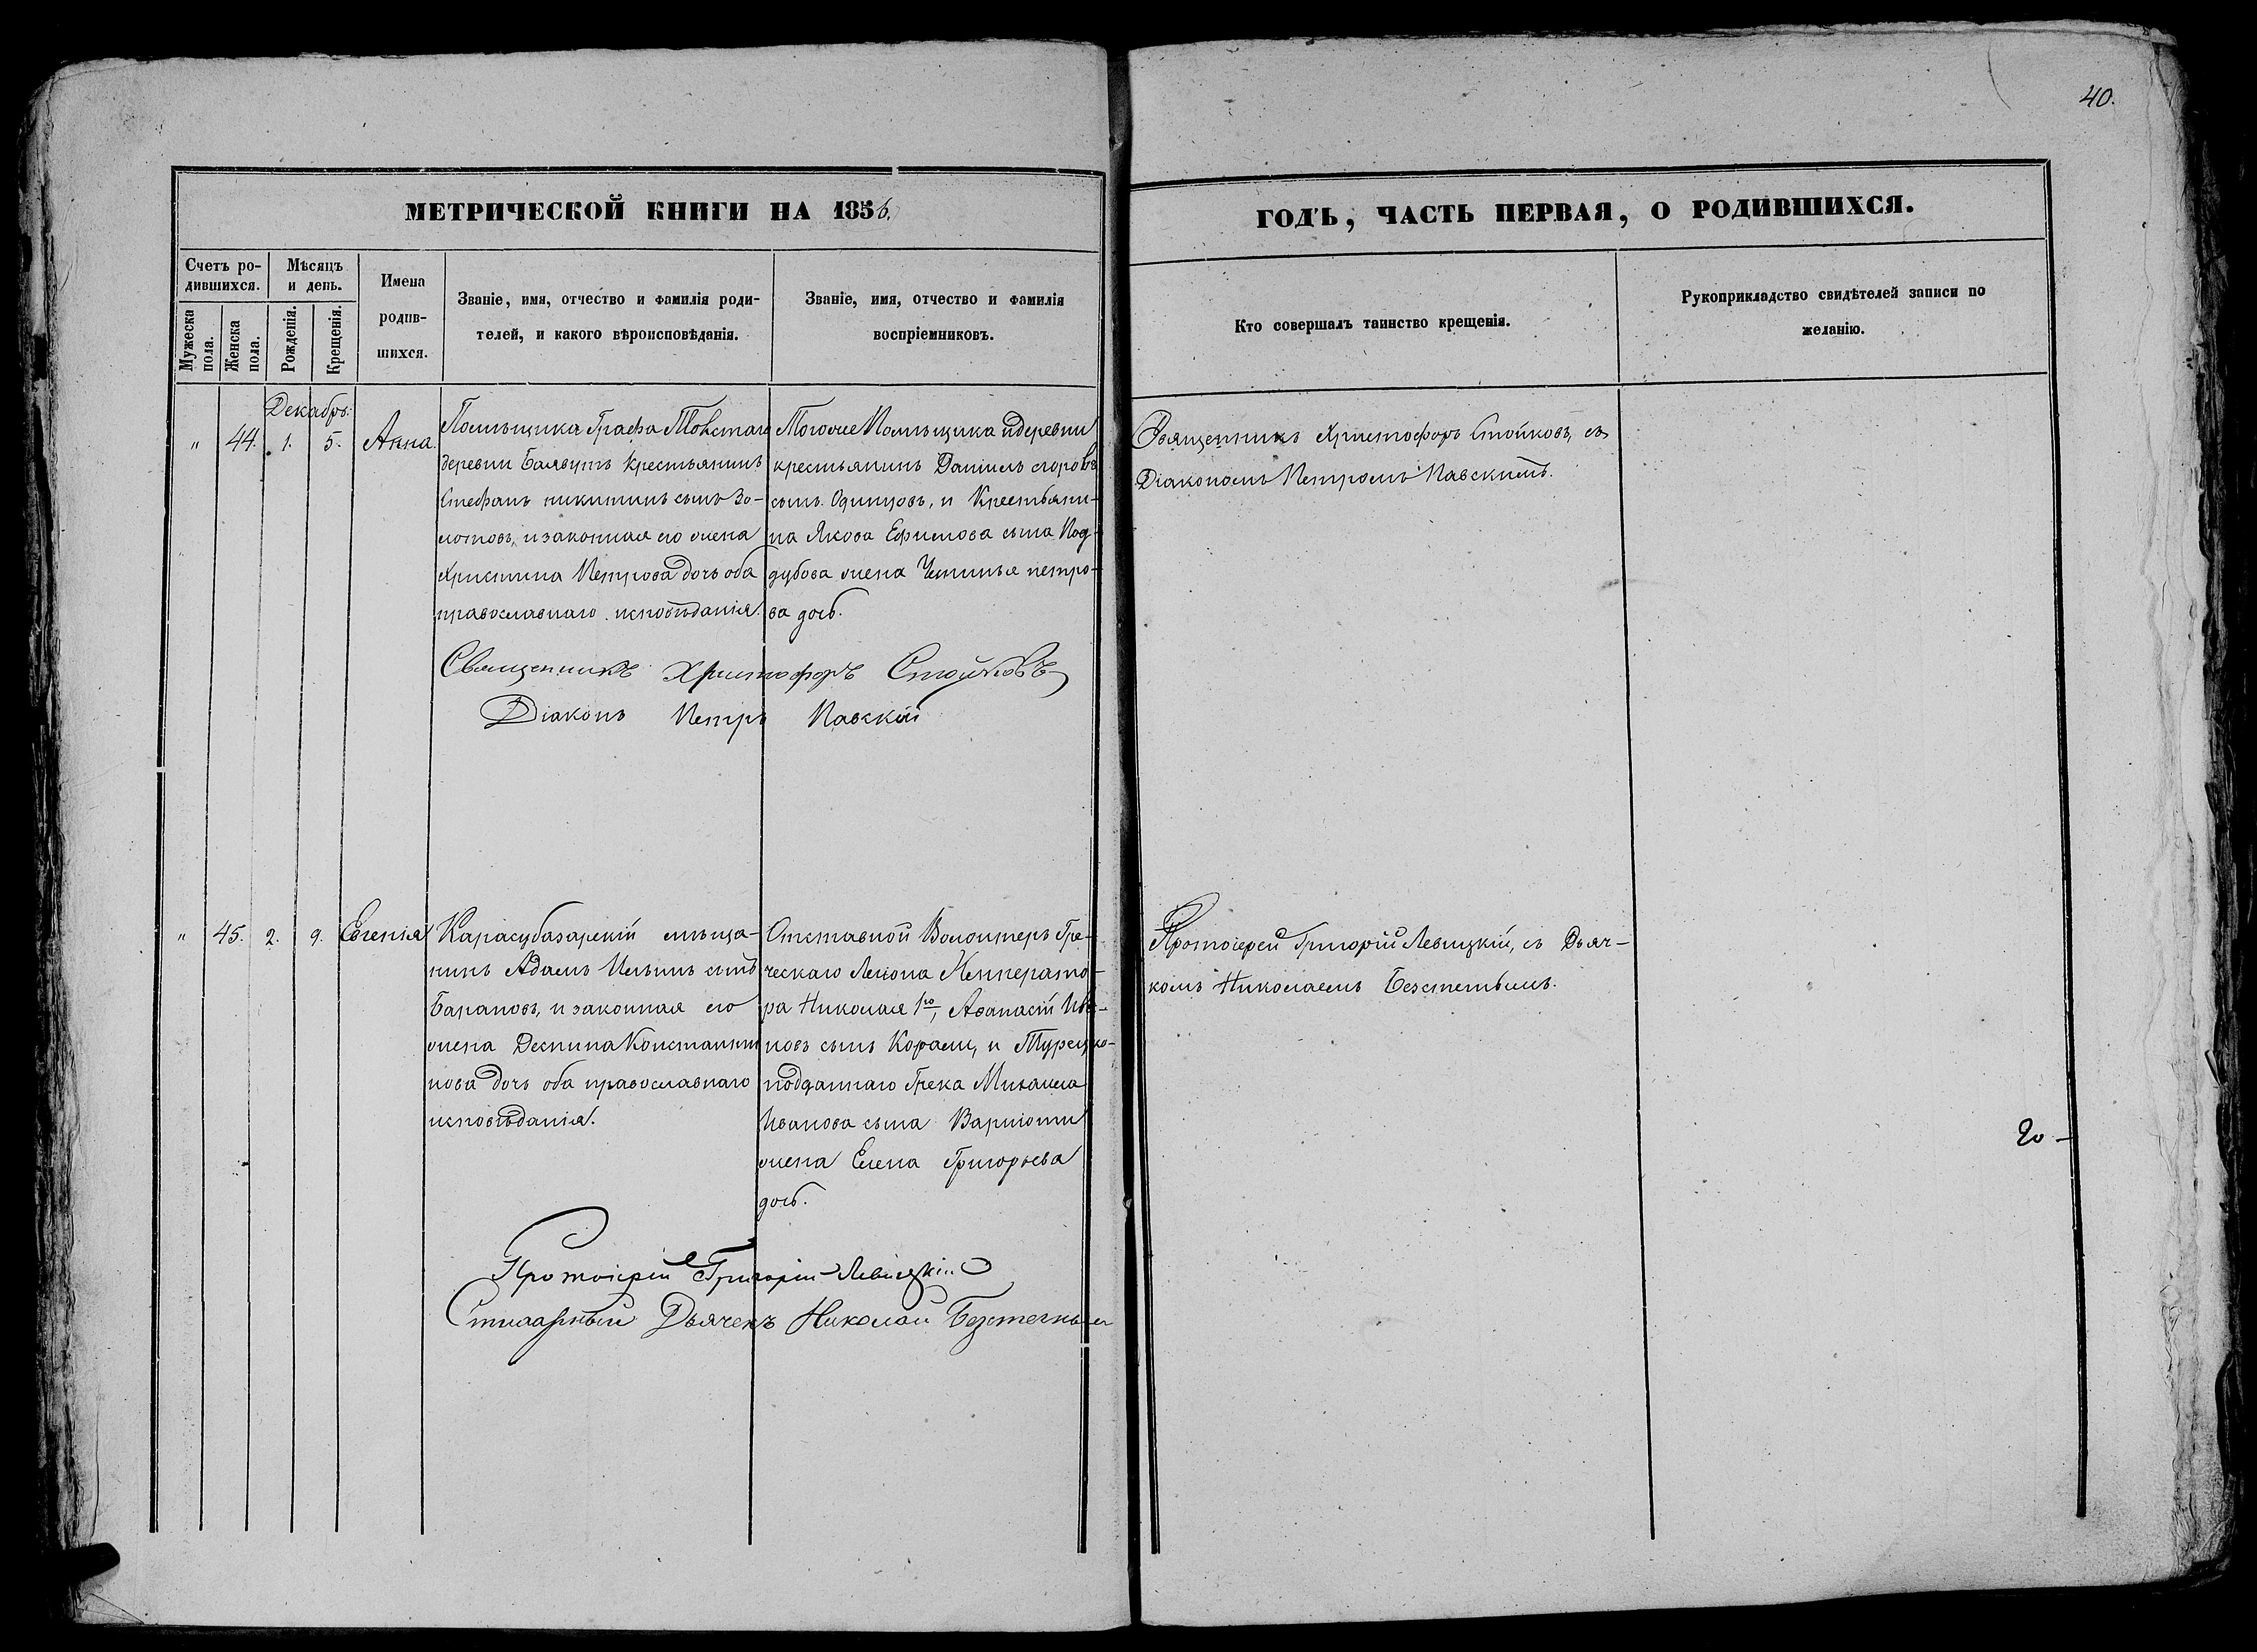 40.
МЕТРИЧЕСКОЙ КНИГИ НА 1856.
ГОДЪ, ЧАСТЬ ПЕРВАЯ, О РОДИВШИХСЯ.
Счетъ ро-
дившихся.
Мѣсяцъ
и день.
Мужеска
пола.
Женска
пола.
Рожденія.
Крещенія.
Имена
родив-
шихся.
Званіе, имя, отчество и фамилія роди-
телей, и какого вѣроисповѣданія.
Званіе, имя, отчество и фамилія
воспріемниковъ.
Кто совершалъ таинство крещенія.
Рукоприкладство свидѣтелей записи по
желанію.
Декабрь.
" 44. 1. 5. Анна.
Помѣщика Графа
деревни крестьянинъ
Стефанъ никитинъ сынъ Зо-
лотовъ, и законная его жена
Христина Петрова дочь оба
православнаго исповѣданія.
Тогоже Помѣщика и деревни
крестьянинъ Даніилъ егоровъ
сынъ Одинцовъ, и Крестьяни-
на Якова Ефимова сына Под-
дубова жена петро-
ва дочь.
Священникъ Христофоръ Стойковъ, съ
Діакономъ Петромъ Павскимъ.
Священникъ Христофоръ Стойковъ
Діаконъ Петръ Павскій
" 45. 2. 9. Евгенія
Карасубазарскій мѣща-
нинъ Адамъ Ильинъ сынъ
Барановъ, и законная его
жена Деспина Константи
нова дочь оба православнаго
исповѣданія.
Отставной Волонтеръ Гре-
ческаго Легіона Императо-
ра Николая 1го, Аѳанасій Ива-
новъ сынъ и Турецко-
подданнаго Грека Михаила
Иванова сына
жена Елена Григорьева
дочь.
Протоіерей Григорій Левицкій, съ Дьяч-
комъ Николаемъ
20 -
Протоіерей Григорій Левицкій
Стихарный Дьячекъ Николай